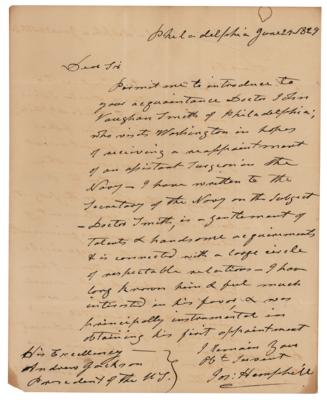 Philadelphia June 1829
Dear Sir
Permit me to introduce to
your acquaintance Doctor
Vaughan Smith of Philadelphia;
who visits Washington in hopes
of receiving a reappointment
of an assistant Surgeon in the
Navy – I have written to the
Secretary of the Navy on the Subject
– Doctor Smith, is a gentleman of
talents & handsome acquirements
& is connected with a large circle
of respectable relations – I have
long known him & feel much
interested in his favor, & was
principally instrumental in
obtaining his first appointment
I Remain Your
Obt Servant
Jos: Hemphill
His Excellency
Andrew Jackson
President of the U.S.